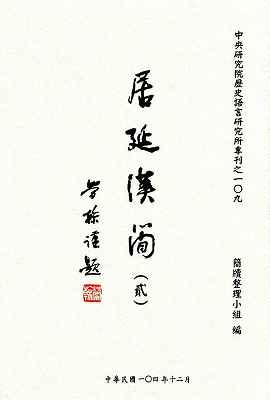 中央研究院歷史語言研究所專刊之一〇九
居延漢簡(貳)
勞榦謹題
簡牘整理小組 編
中華民國一〇四年十二月